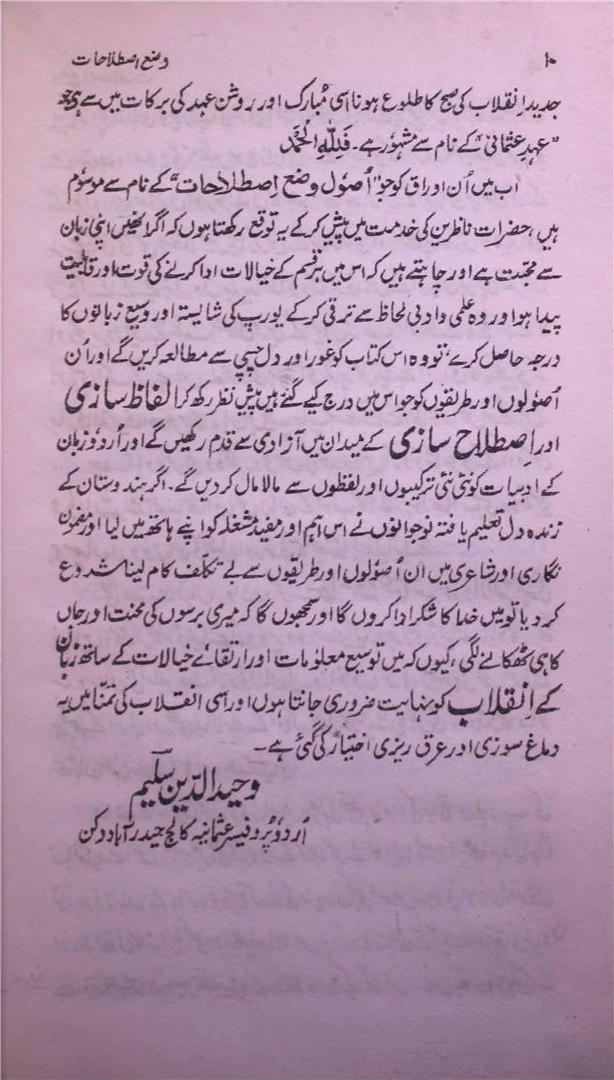 ۱۰ وضع اصطلاحات
جدید انقلاب کی صبح کا طلوع ہونا اسی مُبارک اور روشن عہد کی برکات میں سے ہی جو
”عہدِ عثمانی“ کے نام سے مشہور ہے۔ فَلِلّٰہِ الْحَمْد
اب میں اُن اوراق کو جو ”اُصول وضع اِصطلاحات“ کے نام سے موسُوم
ہیں، حضرات ناظرین کی خدمت میں پیش کر کے یہ توقع رکھتا ہوں کہ اگر انھیں اپنی زبان
سے محبت ہے اور چاہتے ہیں کہ اس میں ہر قسم کے خیالات ادا کرنے کی قوت اور قابلیت
پیدا ہو اور وہ علمی و ادبی لحاظ سے ترقی کر کے یورپ کی شایستہ اور وسیع زبانوں کا
درجہ حاصل کرے، تو وہ اس کتاب کو غور اور دل چسپی سے مطالعہ کریں گے اور اُن
اُصولوں اور طریقوں کو جو اس میں درج کیے گئے ہیں پیشِ نظر رکھ کر الفاظ سازی
اور اِصطلاح سازی کے میدان میں آزادی سے قدم رکھیں گے اور اُردو زبان
کے ادبیات کو نئی نئی ترکیبوں اور لفظوں سے مالا مال کر دیں گے۔ اگر ہندوستان کے
زندہ دل تعلیم یافتہ نوجوانوں نے اس اہم اور مفید مشغلہ کو اپنے ہاتھ میں لیا اور مضمون
نگاری اور شاعری میں ان اُصولوں اور طریقوں سے بے تکلّف کام لینا شروع
کر دیا تو میں خدا کا شکر ادا کروں گا اور سمجھوں گا کہ میری برسوں کی محنت اور جاں
کاہی ٹھکانے لگی، کیوں کہ میں توسیع معلومات اور ارتقائے خیالات کے ساتھ زبان
کے اِنقلاب کو نہایت ضروری جانتا ہوں اور اسی انقلاب کی تمنّا میں یہ
دماغ سوزی اور عرق ریزی اختیار کی گئی ہے۔
وحید الدّین سلیم
اُردو پروفیسر عثمانیہ کالج حیدرآباد دکن